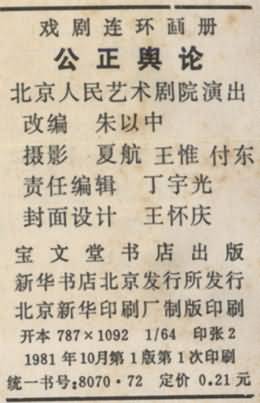 戏剧连环画册
公正舆论
北京人民艺术剧院演出
改编 朱以中
摄影 夏航 王惟 付东
责任编辑 丁宇光
封面设计 王怀庆
宝文堂书店出版
新华书店北京发行所发行
北京新华印刷厂制版印刷
开本 787×1092 1/64 印张 2
1981年10月第1版第1次印刷
统一书号:8070·72 定价 0.21元